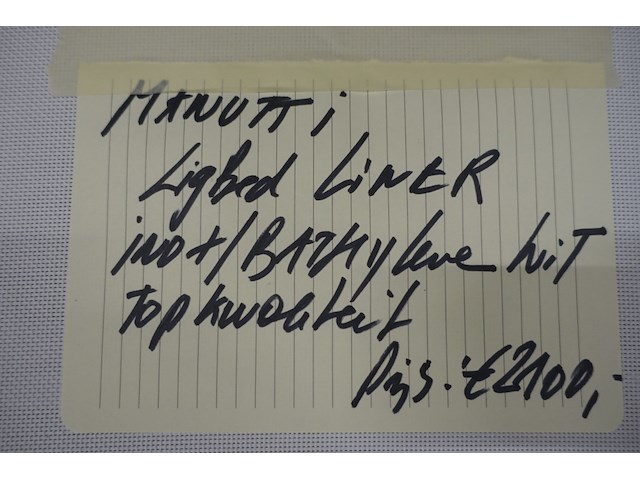 MANUTTi
LigBed LiNER
iNOX/BATHyline WiT
Topkwaliteit
Prijs: €2100,-